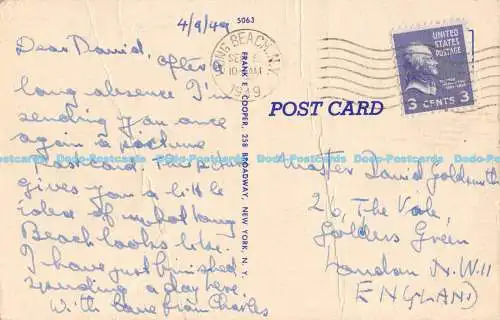 4/9/49
5063
Dear David, after a
long absence I'm
sending you once
again a picture
Postcard. This pic
gives you a little
idea of what Long
Beach looks like.
I have just finished
spending a day here.
With love from Charles
FRANK E. COOPER, 258 BROADWAY, NEW YORK, N. Y.
LONG BEACH, N.Y.
1949
UNITED
STATES
POSTAGE
3 CENTS 3
POST CARD
Master David Goldsmith
26, The Vale,
Golders Green
London N.W.11
ENGLAND
Dado-Postcards